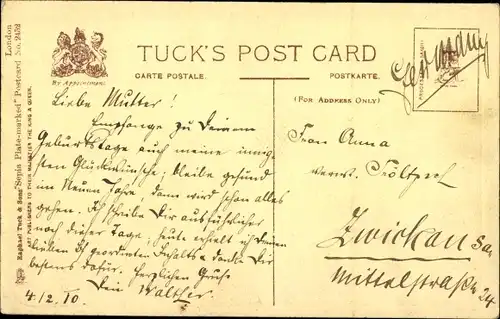 London
Postcard No. 2452
Raphael Tuck & Sons' "Sepia Plate-marked"
PUBLISHERS TO THEIR MAJESTIES THE KING & QUEEN.
By Appointment.
TUCK'S POST CARD
CARTE POSTALE.
POSTKARTE.
(FOR ADDRESS ONLY)
Germany
Liebe Mutter!
Empfange zu Deinem
Geburtstage auch meine innig-
sten Glückwünsche; bleibe gesund
im Neuen Jahre, dann wird schon alles
gehen. Ich schreibe Dir ausführlicher
noch dieser Tage, heute erhielt ich Deinen
lieben Inhalts & danke Dir
bestens dafür. Herzlichen Gruss
Dein Walther.
4.12.10
Frau Anna
verw.
Zwickau Sa.
Mittelstraße 24